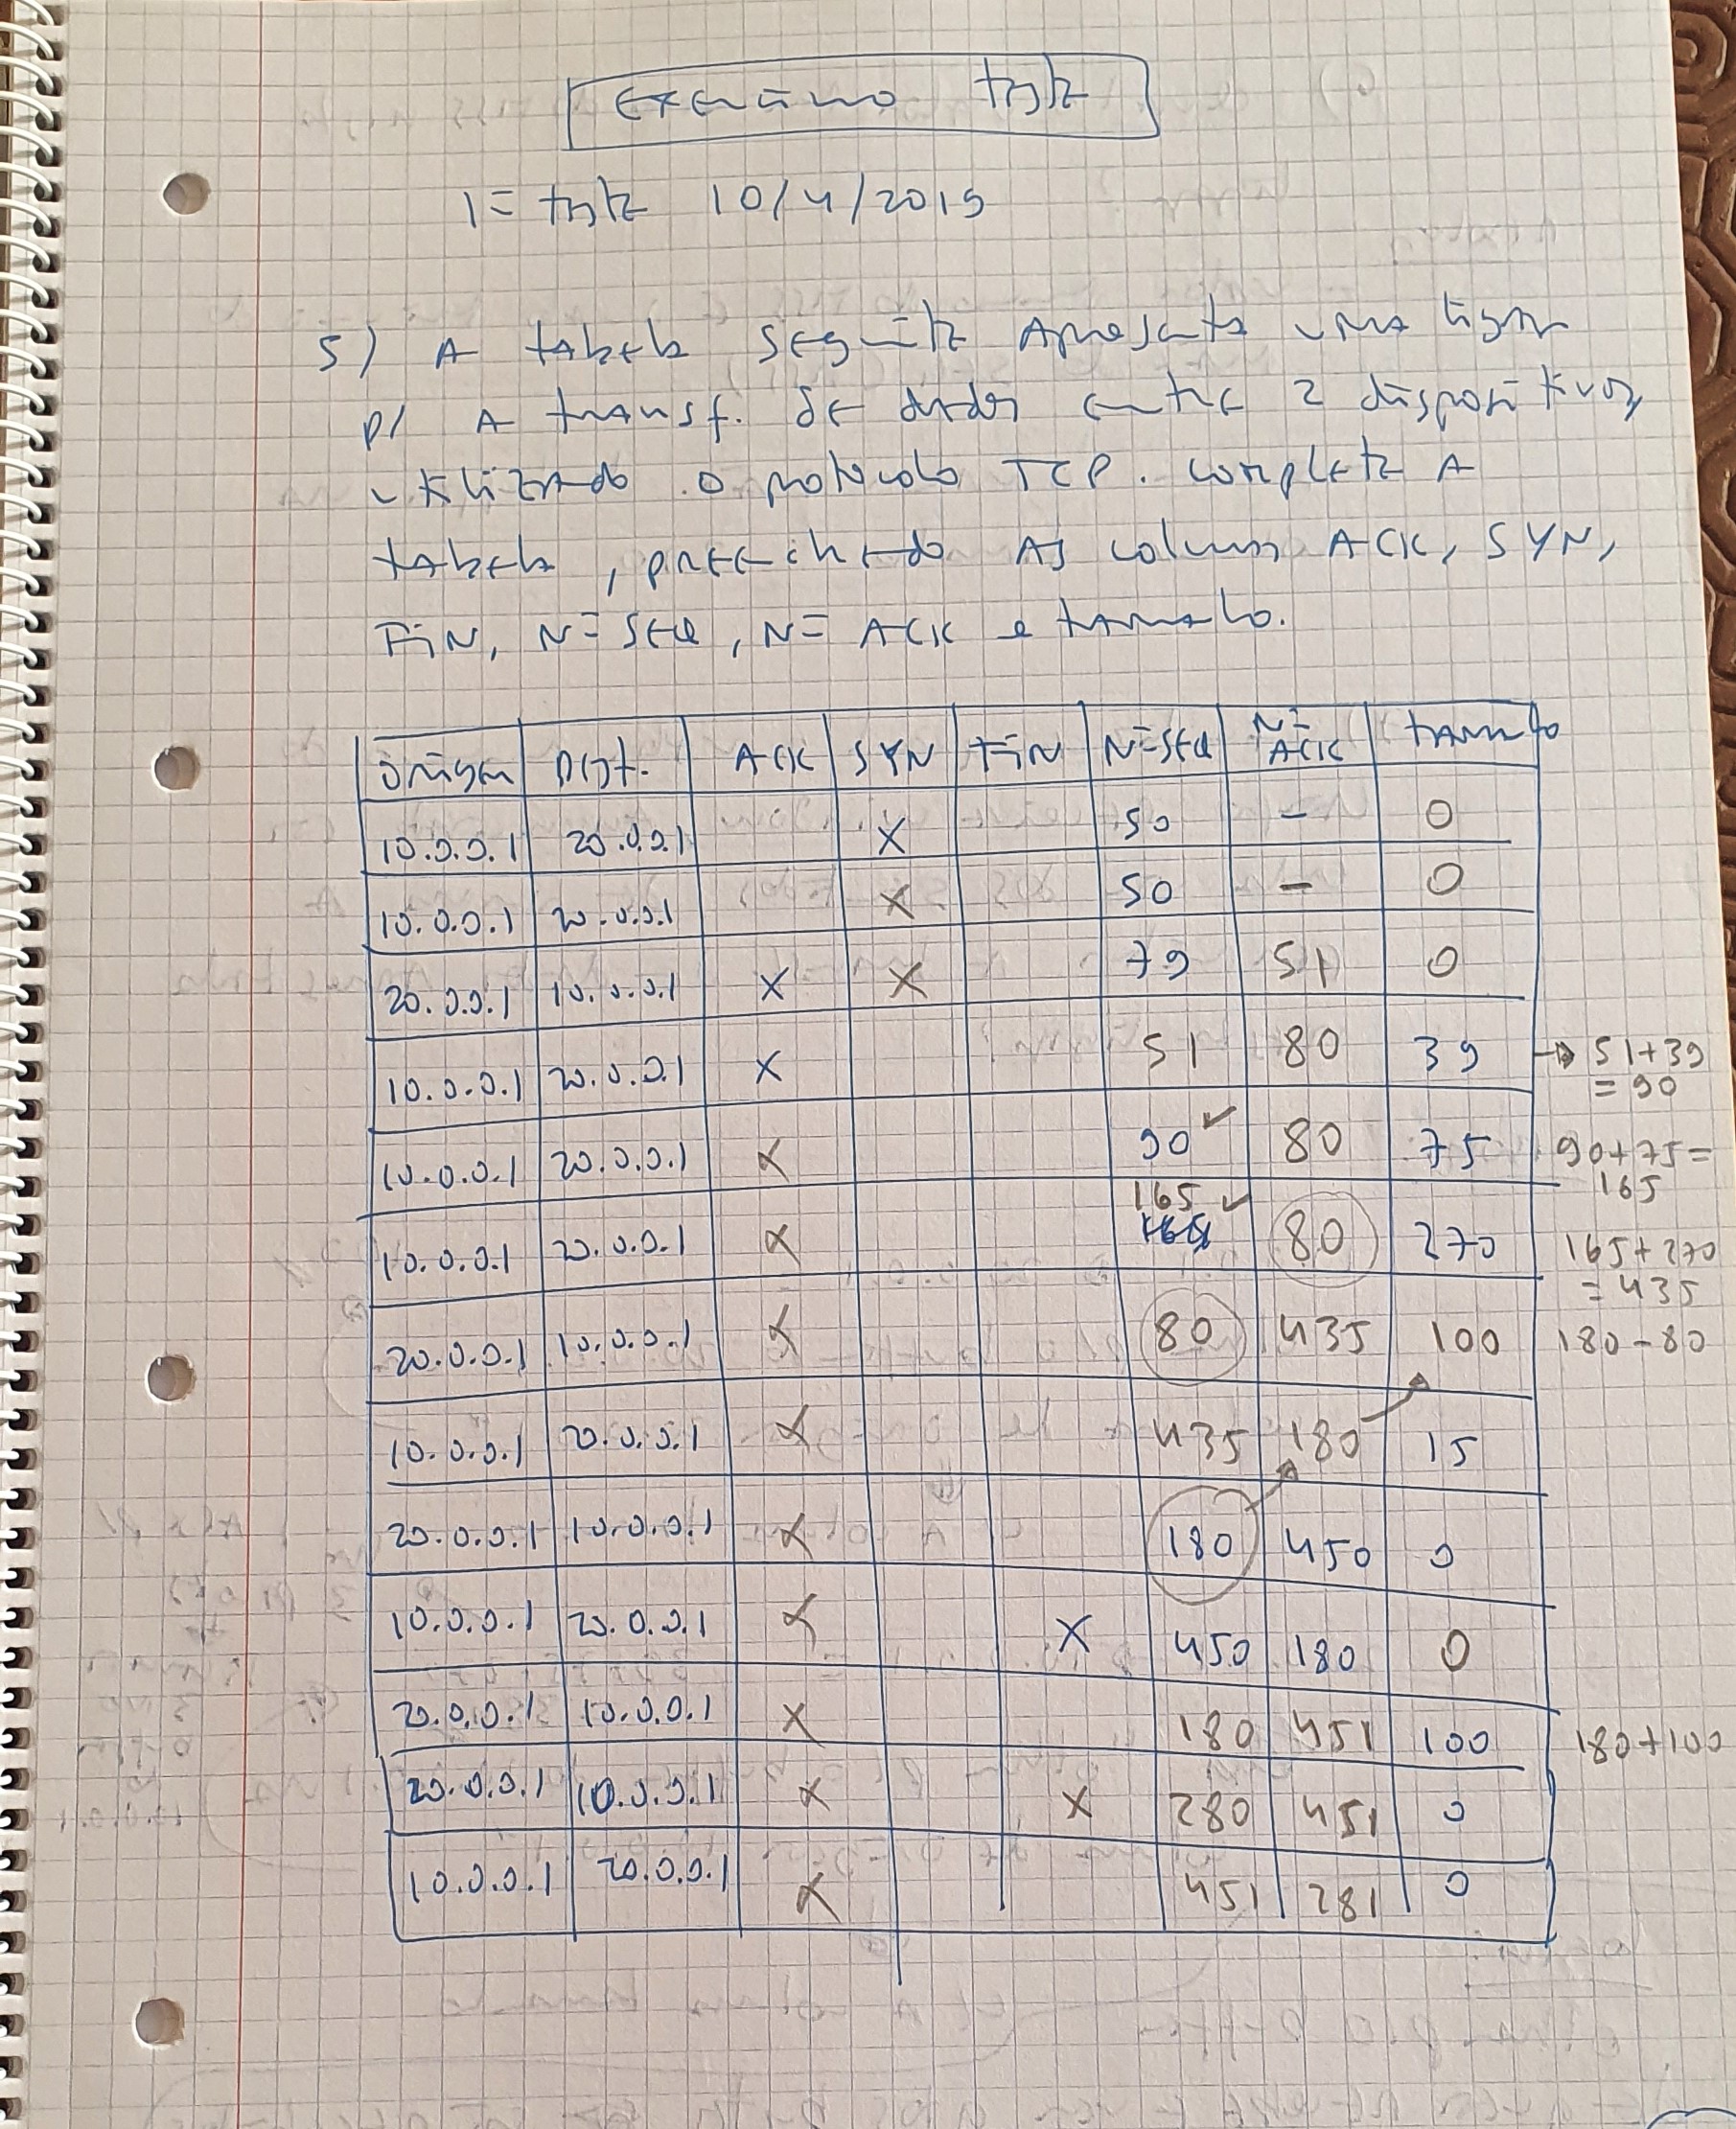 exercício teste
1º teste 10/4/2019
5) A tabela seguinte Apresenta uma ligação
p/ A transf. de dados entre 2 dispositivos,
utilizando o protocolo TCP. Complete A
tabela, preenchendo AS colunas ACK, SYN,
FiN, Nº SEQ, Nº ACK e tamanho.
Origem Dest. ACK SYN FiN Nº SEQ Nº ACK tamanho
10.0.0.1 20.0.0.1 X 50 - 0
10.0.0.1 20.0.0.1 X 50 - 0
20.0.0.1 10.0.0.1 X X 79 51 0
10.0.0.1 20.0.0.1 X 51 80 39 → 51+39
= 90
10.0.0.1 20.0.0.1 X 90 ✓ 80 75 90+75=
165
10.0.0.1 20.0.0.1 X 165 ✓ 80 270 165+270
= 435
20.0.0.1 10.0.0.1 X 80 435 100 180-80
10.0.0.1 20.0.0.1 X 435 180 15
20.0.0.1 10.0.0.1 X 180 450 0
10.0.0.1 20.0.0.1 X X 450 180 0
20.0.0.1 10.0.0.1 X 180 451 100 180+100
20.0.0.1 10.0.0.1 X X 280 451 0
10.0.0.1 20.0.0.1 X 451 281 0